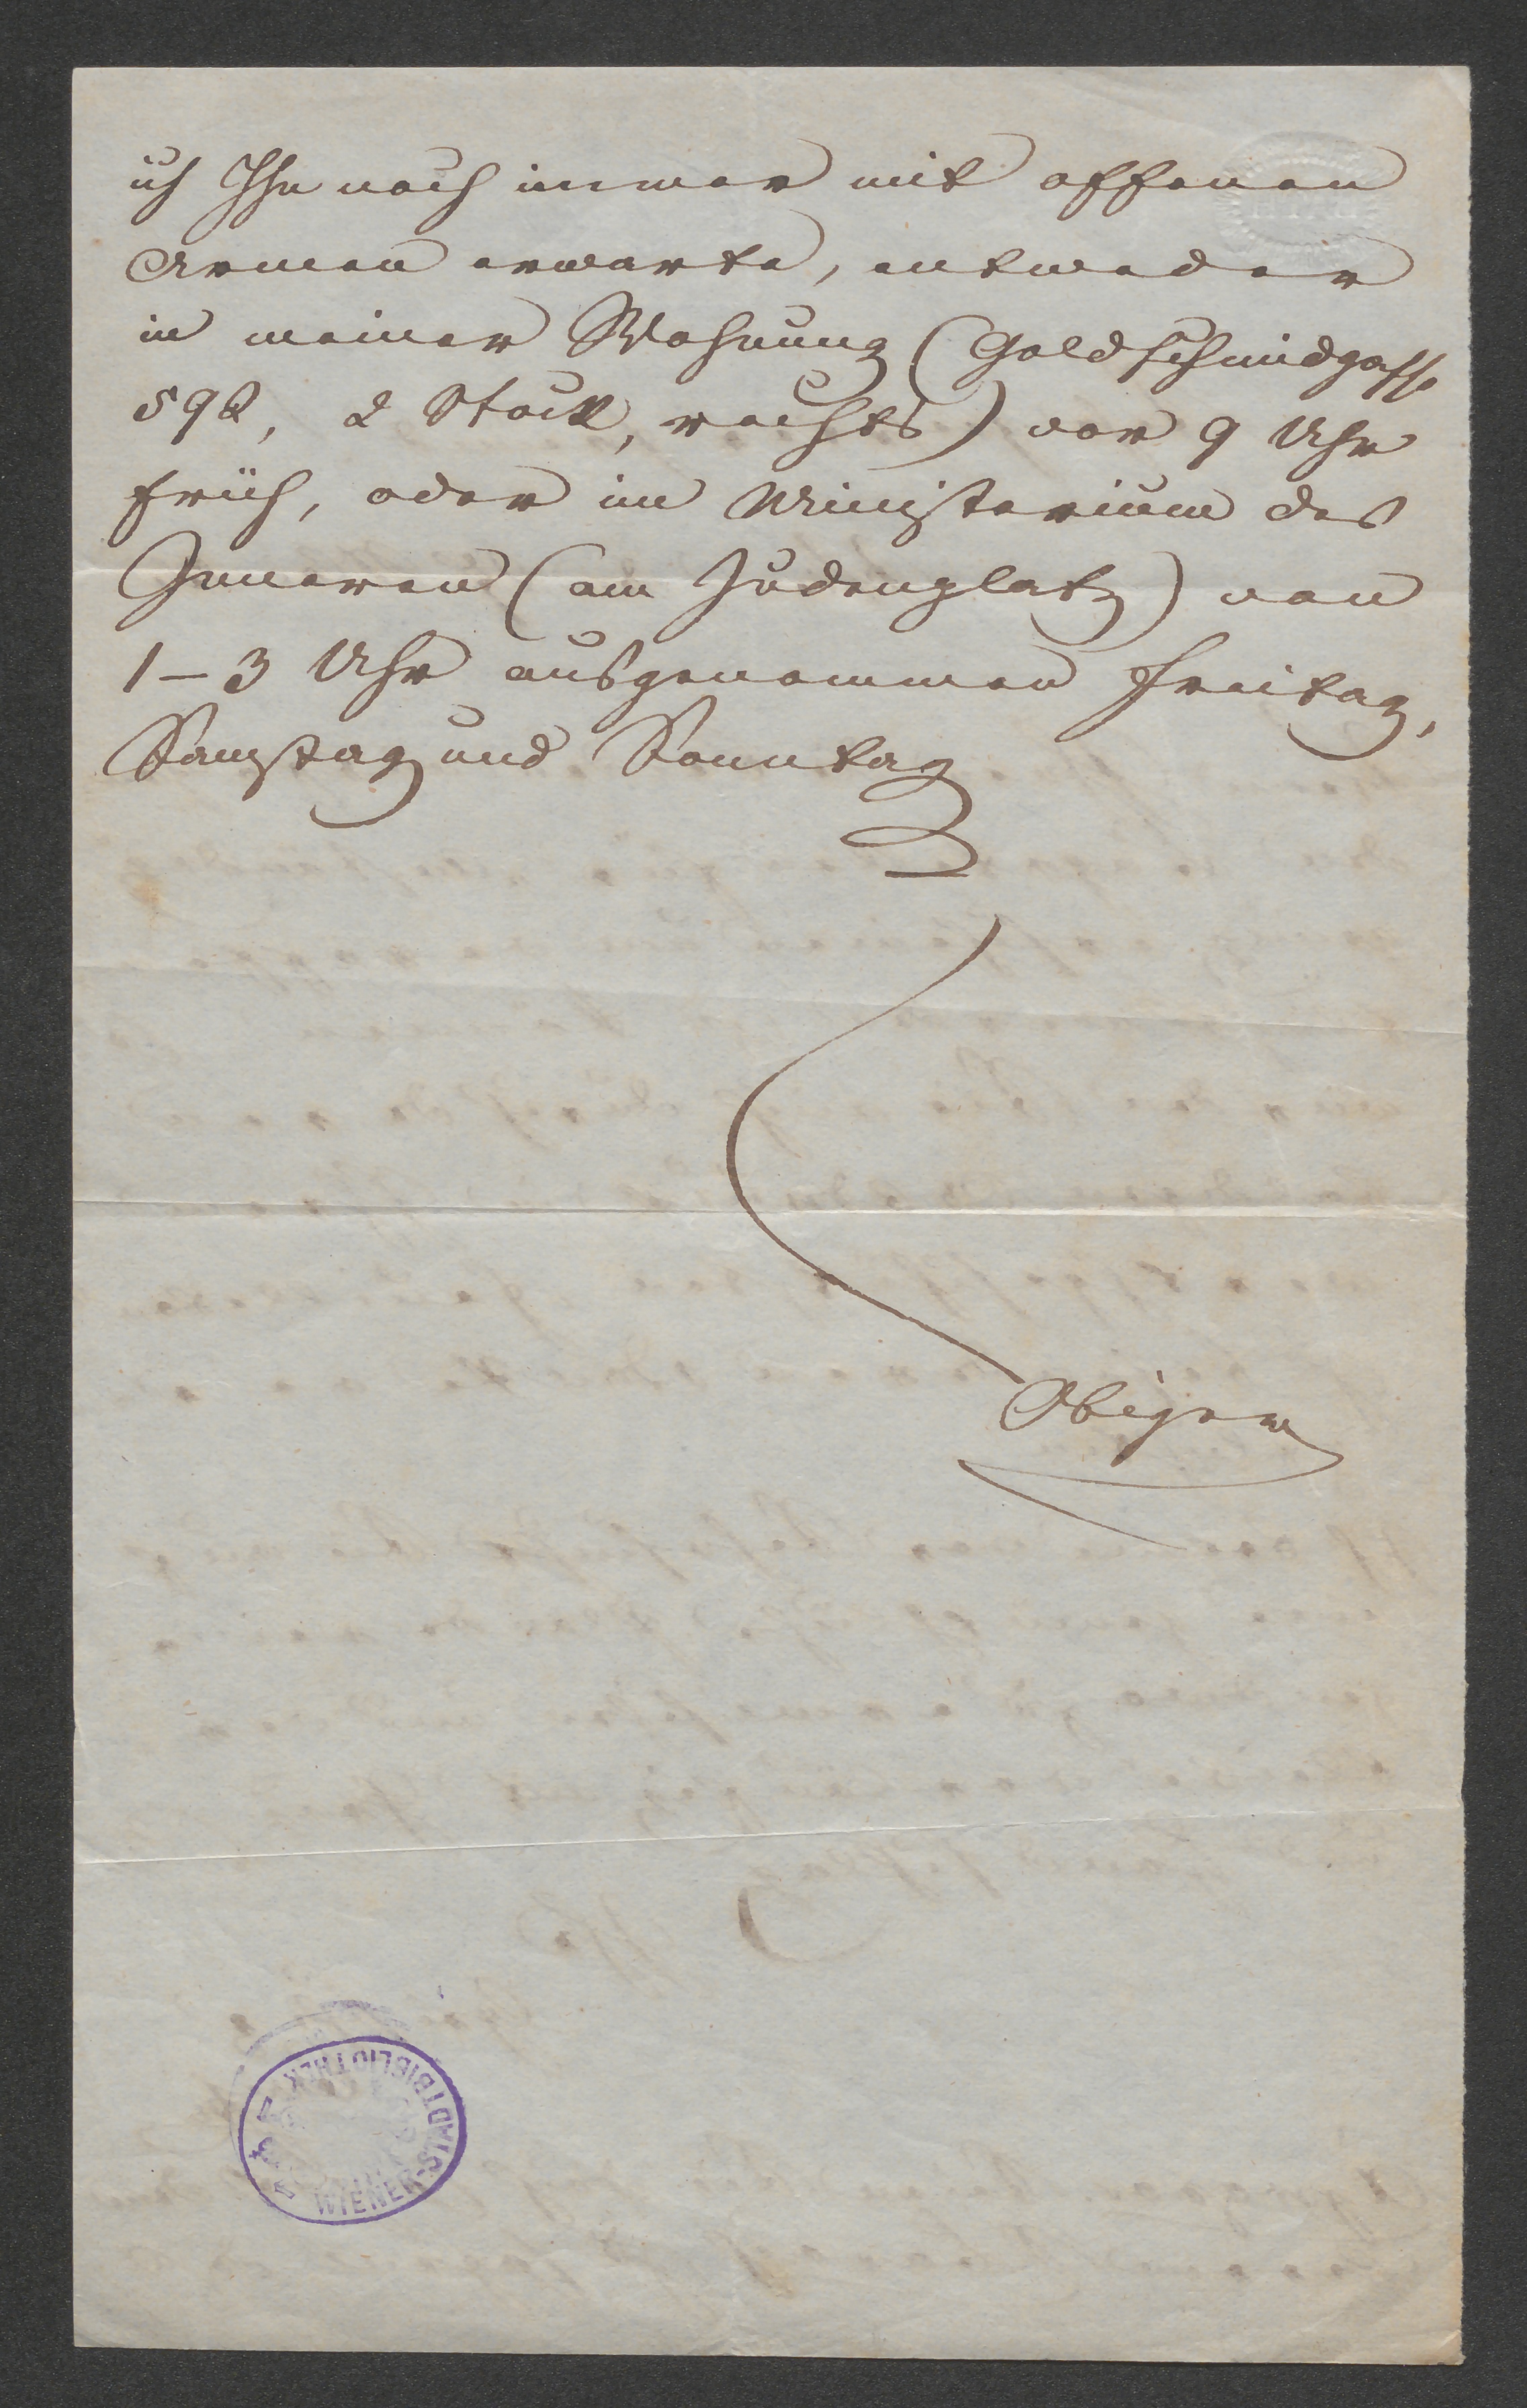 ich Ihn noch immer mit offenen
Armen erwarte, entweder
in meiner Wohnung (Goldschmidgasse
592, 2 Stock, rechts) vor 9 Uhr
früh, oder im Ministerium des
Inneren (am Judenplatz) von
1–3 Uhr ausgenommen Freitag,
Samstag und Sonntag
Obiger
WIENER-STADTBIBLIOTHEK